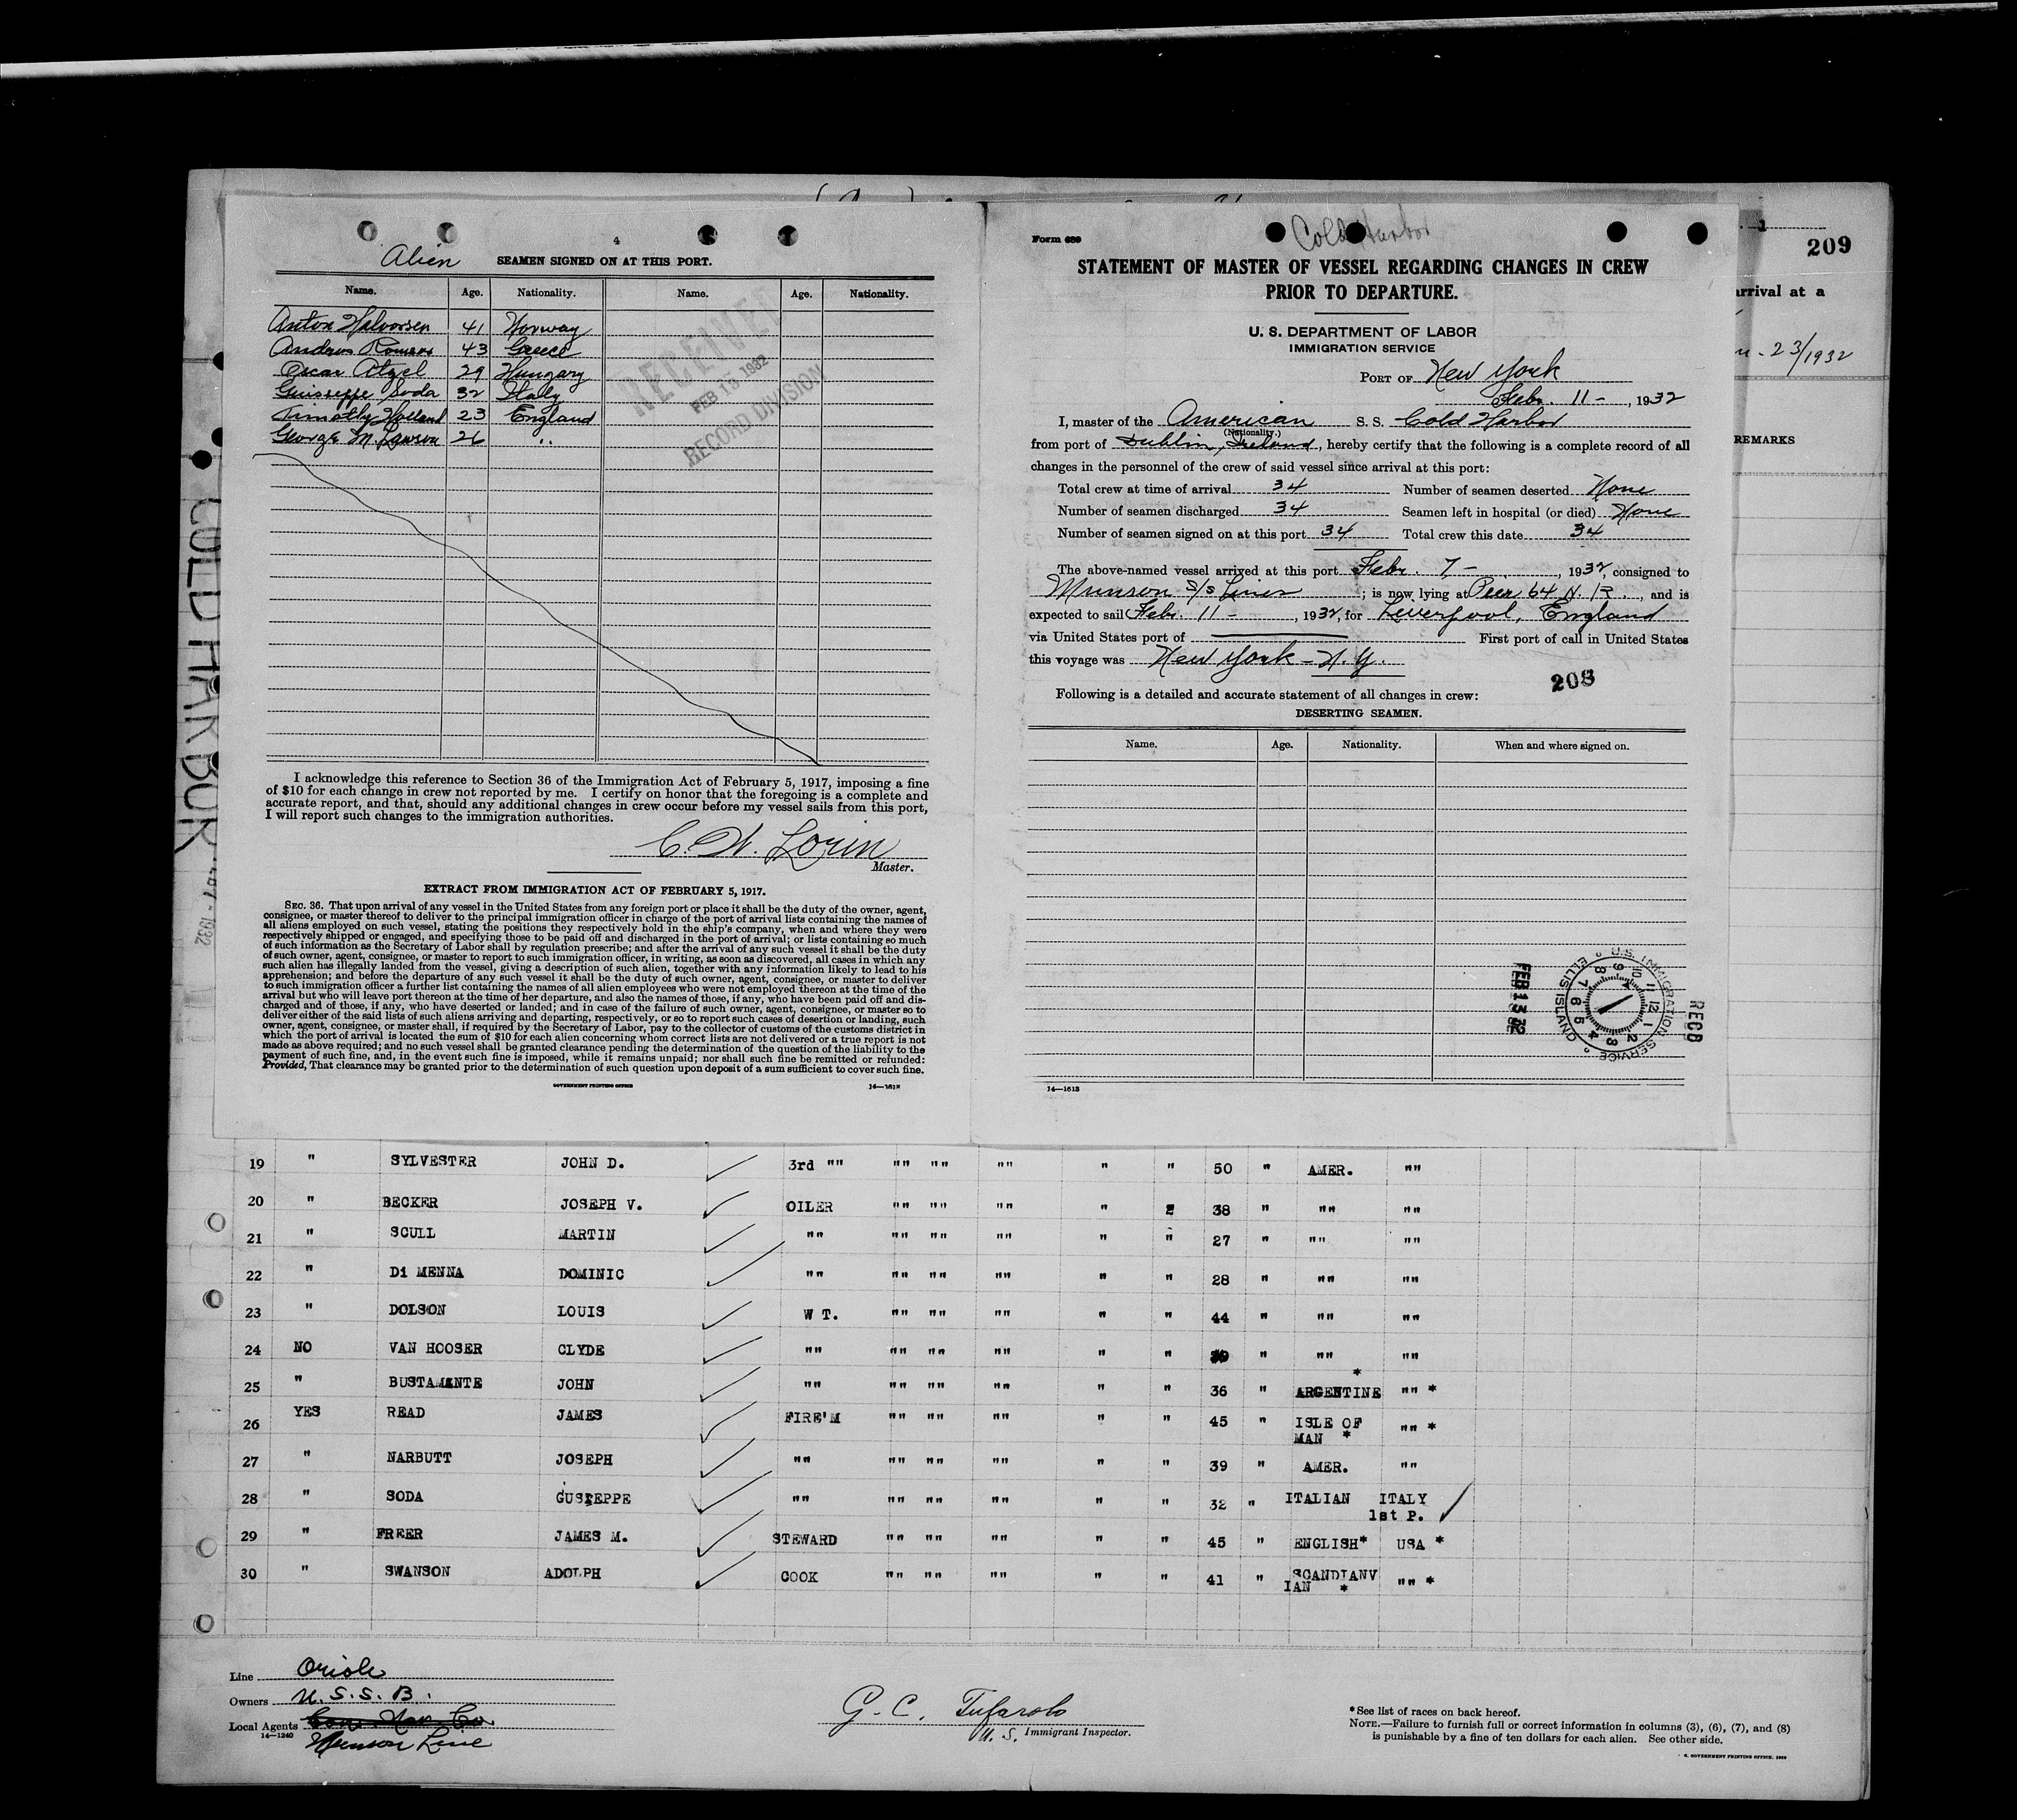 4
Alien SEAMEN SIGNED ON AT THIS PORT.
Name. Age. Nationality. Name. Age. Nationality.
Anton Halvorsen 41 Norway
Andrew Romers 43 Greece
Oscar Atzel 29 Hungary
Guisseppe Soda 32 Italy
Timothy Holland 23 England
George M. Lawson 26 "
RECEIVED
FEB 13 1932
RECORD DIVISION
I acknowledge this reference to Section 36 of the Immigration Act of February 5, 1917, imposing a fine
of $10 for each change in crew not reported by me. I certify on honor that the foregoing is a complete and
accurate report, and that, should any additional changes in crew occur before my vessel sails from this port,
I will report such changes to the immigration authorities.
C. W. Lorin
Master.
EXTRACT FROM IMMIGRATION ACT OF FEBRUARY 5, 1917.
SEC. 36. That upon arrival of any vessel in the United States from any foreign port or place it shall be the duty of the owner, agent,
consignee, or master thereof to deliver to the principal immigration officer in charge of the port of arrival lists containing the names of
all aliens employed on such vessel, stating the positions they respectively hold in the ship's company, when and where they were
respectively shipped or engaged, and specifying those to be paid off and discharged in the port of arrival; or lists containing so much
of such information as the Secretary of Labor shall by regulation prescribe; and after the arrival of any such vessel it shall be the duty
of such owner, agent, consignee, or master to report to such immigration officer, in writing, as soon as discovered, all cases in which any
such alien has illegally landed from the vessel, giving a description of such alien, together with any information likely to lead to his
apprehension; and before the departure of any such vessel it shall be the duty of such owner, agent, consignee, or master to deliver
to such immigration officer a further list containing the names of all alien employees who were not employed thereon at the time of the
arrival but who will leave port thereon at the time of her departure, and also the names of those, if any, who have been paid off and dis-
charged and of those, if any, who have deserted or landed; and in case of the failure of such owner, agent, consignee, or master so to
deliver either of the said lists of such aliens arriving and departing, respectively, or so to report such cases of desertion or landing, such
owner, agent, consignee, or master shall, if required by the Secretary of Labor, pay to the collector of customs of the customs district in
which the port of arrival is located the sum of $10 for each alien concerning whom correct lists are not delivered or a true report is not
made as above required; and no such vessel shall be granted clearance pending the determination of the question of the liability to the
payment of such fine, and, in the event such fine is imposed, while it remains unpaid; nor shall such fine be remitted or refunded:
Provided, That clearance may be granted prior to the determination of such question upon deposit of a sum sufficient to cover such fine.
GOVERNMENT PRINTING OFFICE 14—1613
COLD HARBOR
1932
Form 689 Cold Harbor
STATEMENT OF MASTER OF VESSEL REGARDING CHANGES IN CREW
PRIOR TO DEPARTURE.
U. S. DEPARTMENT OF LABOR
IMMIGRATION SERVICE
PORT OF New York
Febr. 11 - , 1932
I, master of the American S. S. Cold Harbor
(Nationality.)
from port of Dublin, Ireland, hereby certify that the following is a complete record of all
changes in the personnel of the crew of said vessel since arrival at this port:
Total crew at time of arrival 34 Number of seamen deserted None
Number of seamen discharged 34 Seamen left in hospital (or died) None
Number of seamen signed on at this port 34 Total crew this date 34
The above-named vessel arrived at this port Febr. 7 - , 1932, consigned to
Munson S/S Lines ; is now lying at Peir 64 N. R. , and is
expected to sail Febr. 11 - , 1932, for Liverpool, England
via United States port of First port of call in United States
this voyage was New York - N. Y.
208
Following is a detailed and accurate statement of all changes in crew:
DESERTING SEAMEN.
Name. Age. Nationality. When and where signed on.
RECD
U.S. IMMIGRATION SERVICE ELLIS ISLAND
12 1 2 3 4 5 6 7 8 9 10 11
FEB 13 32
14—1613
209
arrival at a
23/1932
REMARKS
19 " SYLVESTER JOHN D. 3rd "" "" "" "" " " 50 " AMER. ""
20 " BECKER JOSEPH V. OILER "" "" "" " 2 38 " "" ""
21 " SCULL MARTIN "" "" "" "" " " 27 " "" ""
22 " Di MENNA DOMINIC "" "" "" "" " " 28 " "" ""
23 " DOLSON LOUIS W T. "" "" "" " " 44 " "" ""
24 NO VAN HOOSER CLYDE "" "" "" "" " " " "" ""
25 " BUSTAMANTE JOHN "" "" "" "" " " 36 " ARGENTINE * "" *
26 YES READ JAMES FIRE'M "" "" "" " " 45 " ISLE OF MAN * "" *
27 " NARBUTT JOSEPH "" "" "" "" " " 39 " AMER. ""
28 " SODA GUSIEPPE "" "" "" "" " " 32 " ITALIAN ITALY 1st P.
29 " FREER JAMES M. STEWARD "" "" "" " " 45 " ENGLISH* USA *
30 " SWANSON ADOLPH COOK "" "" "" " " 41 " SCANDIANV IAN * "" *
Line Oriole
Owners U. S. S. B.
Local Agents
14—1240
Munson Line
G. C. Tufarolo
U. S. Immigrant Inspector.
*See list of races on back hereof.
NOTE.—Failure to furnish full or correct information in columns (3), (6), (7), and (8)
is punishable by a fine of ten dollars for each alien. See other side.
GOVERNMENT PRINTING OFFICE